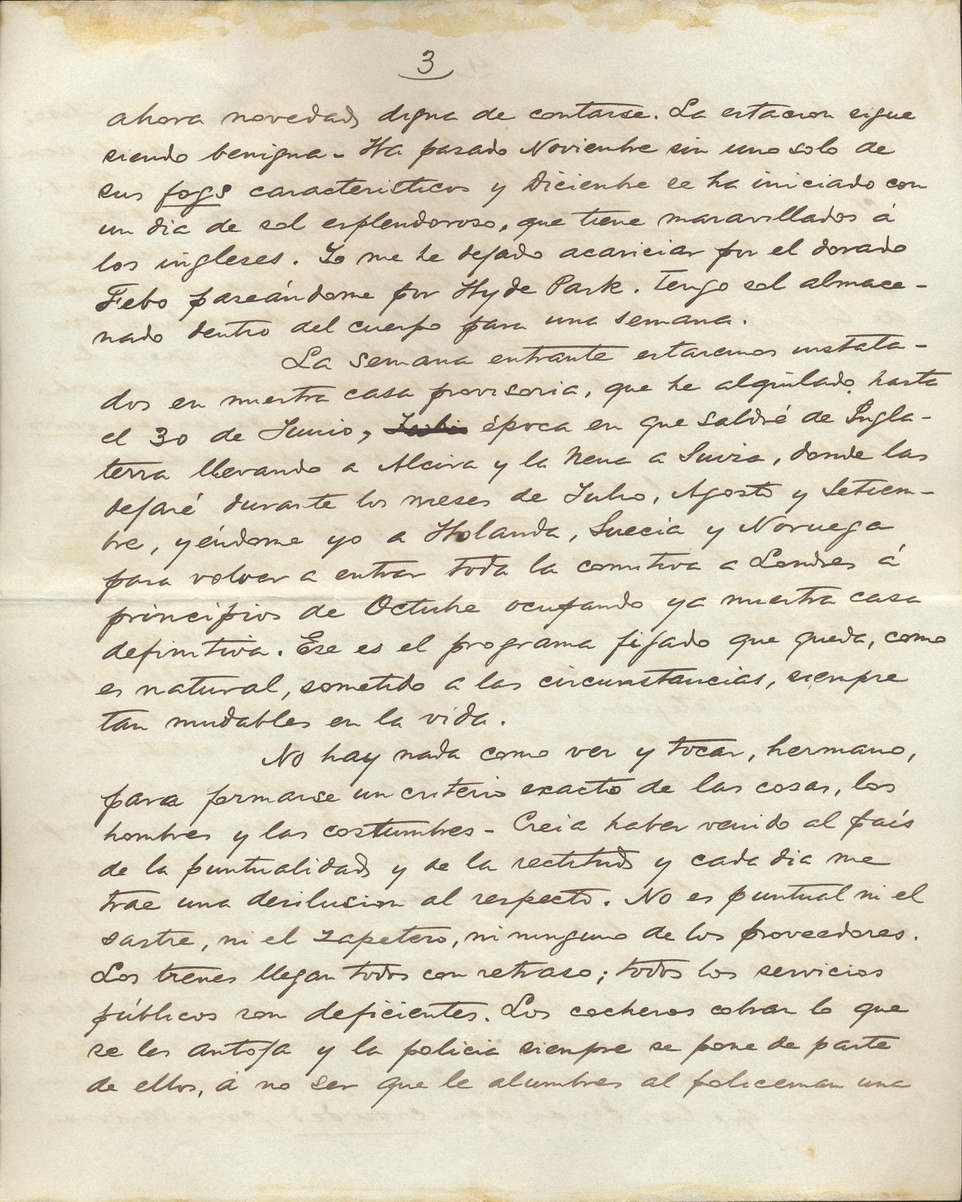 3
ahora novedad digna de contarse. La estacion sigue
siendo benigna - Ha pasado Noviembre sin uno solo de
sus fogs caracteristicos y Diciembre se ha iniciado con
un dia de sol esplendoroso, que tiene maravillados á
los ingleses. Yo me he dejado acariciar por el dorado
Febo paseándome por Hyde Park. Tengo sol almace-
nado dentro del cuerpo para una semana.
La semana entrante estaremos instala-
dos en nuestra casa provisoria, que he alquilado hasta
el 30 de Junio, época en que saldré de Ingla-
terra llevando a Alcira y la Nena a Suiza, donde las
dejaré durante los meses de Julio, Agosto y Setiem-
bre, yéndome yo a Holanda, Suecia y Noruega
para volver a entrar toda la comitiva a Londres á
principios de Octubre ocupando ya nuestra casa
definitiva. Ese es el programa fijado que queda, como
es natural, sometido a las circunstancias, siempre
tan mudables en la vida.
No hay nada como ver y tocar, hermano,
para formarse un criterio exacto de las cosas, los
hombres y las costumbres - Creia haber venido al país
de la puntualidad y de la rectitud y cada dia me
trae una desilusion al respecto. No es puntual ni el
sastre, ni el zapatero, ni ninguno de los proveedores.
Los trenes llegan todos con retraso; todos los servicios
públicos son deficientes. Los cocheros cobran lo que
se les antoja y la policia siempre se pone de parte
de ellos, á no ser que le alumbres al policeman una